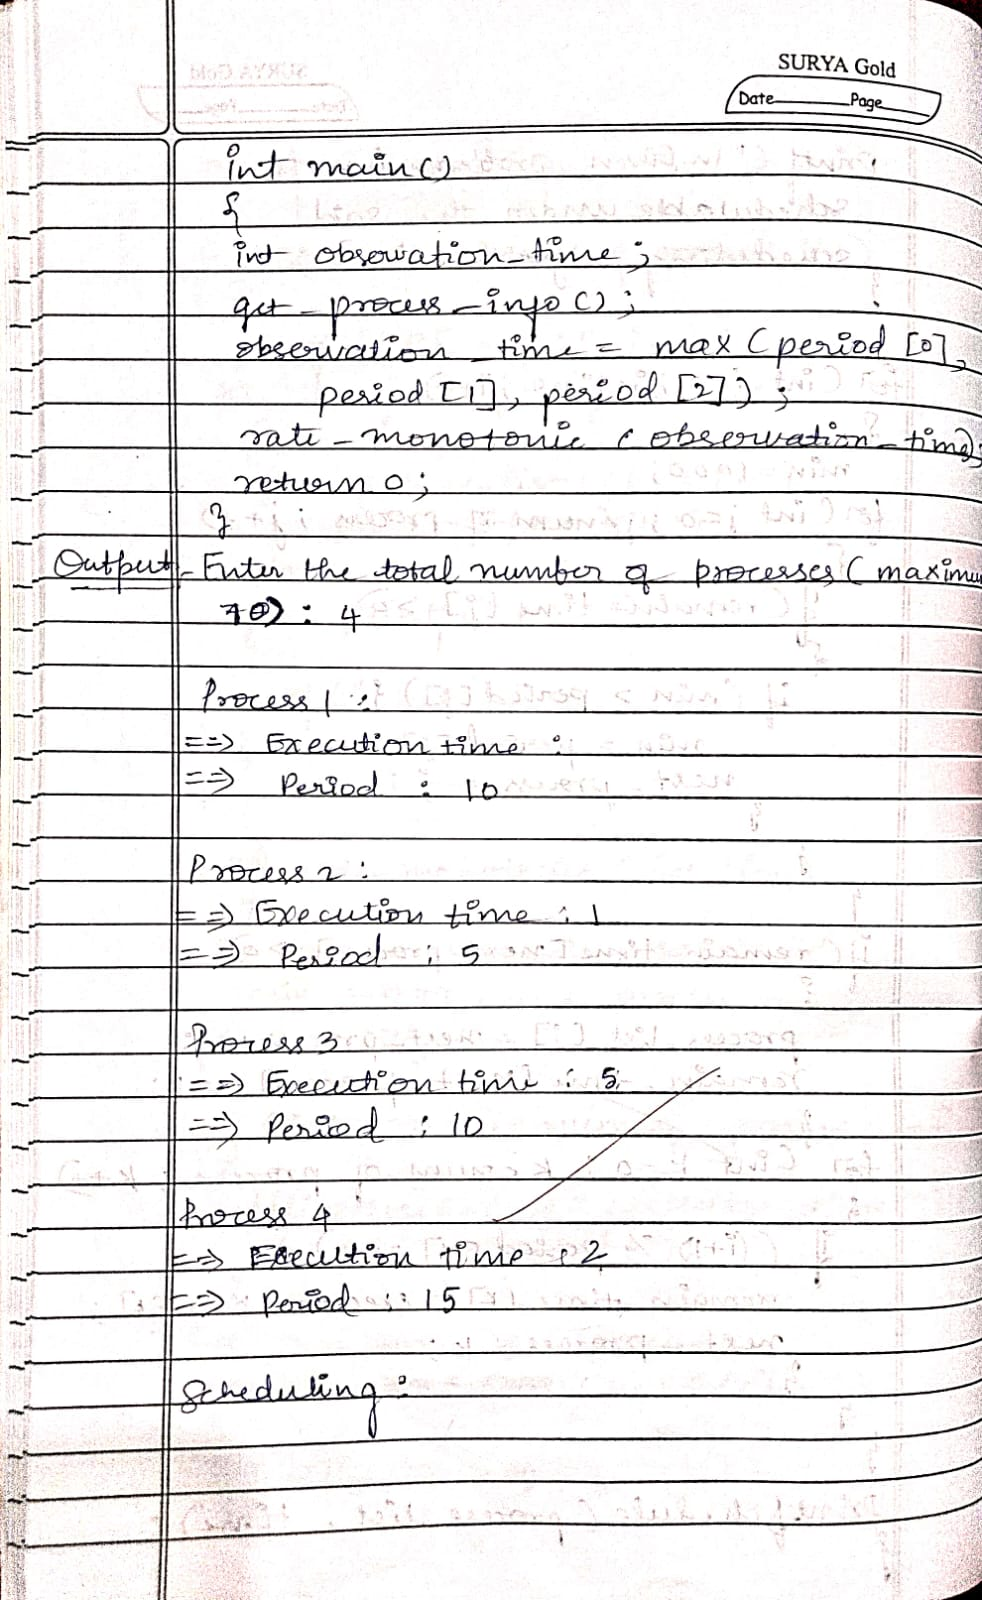 SURYA Gold
Date Page
int main()
{
int observation_time;
get_process_info();
observation_time = max(period[0],
period[1], period[2]);
rate_monotonic(observation_time);
return 0;
}
Output - Enter the total number of processes (maximum
10): 4
Process 1:
==> Execution time :
==> Period : 10
Process 2:
==> Execution time : 1
==> Period : 5
Process 3
==> Execution time : 5
==> Period : 10
Process 4
==> Execution time : 2
==> Period : 15
Scheduling: